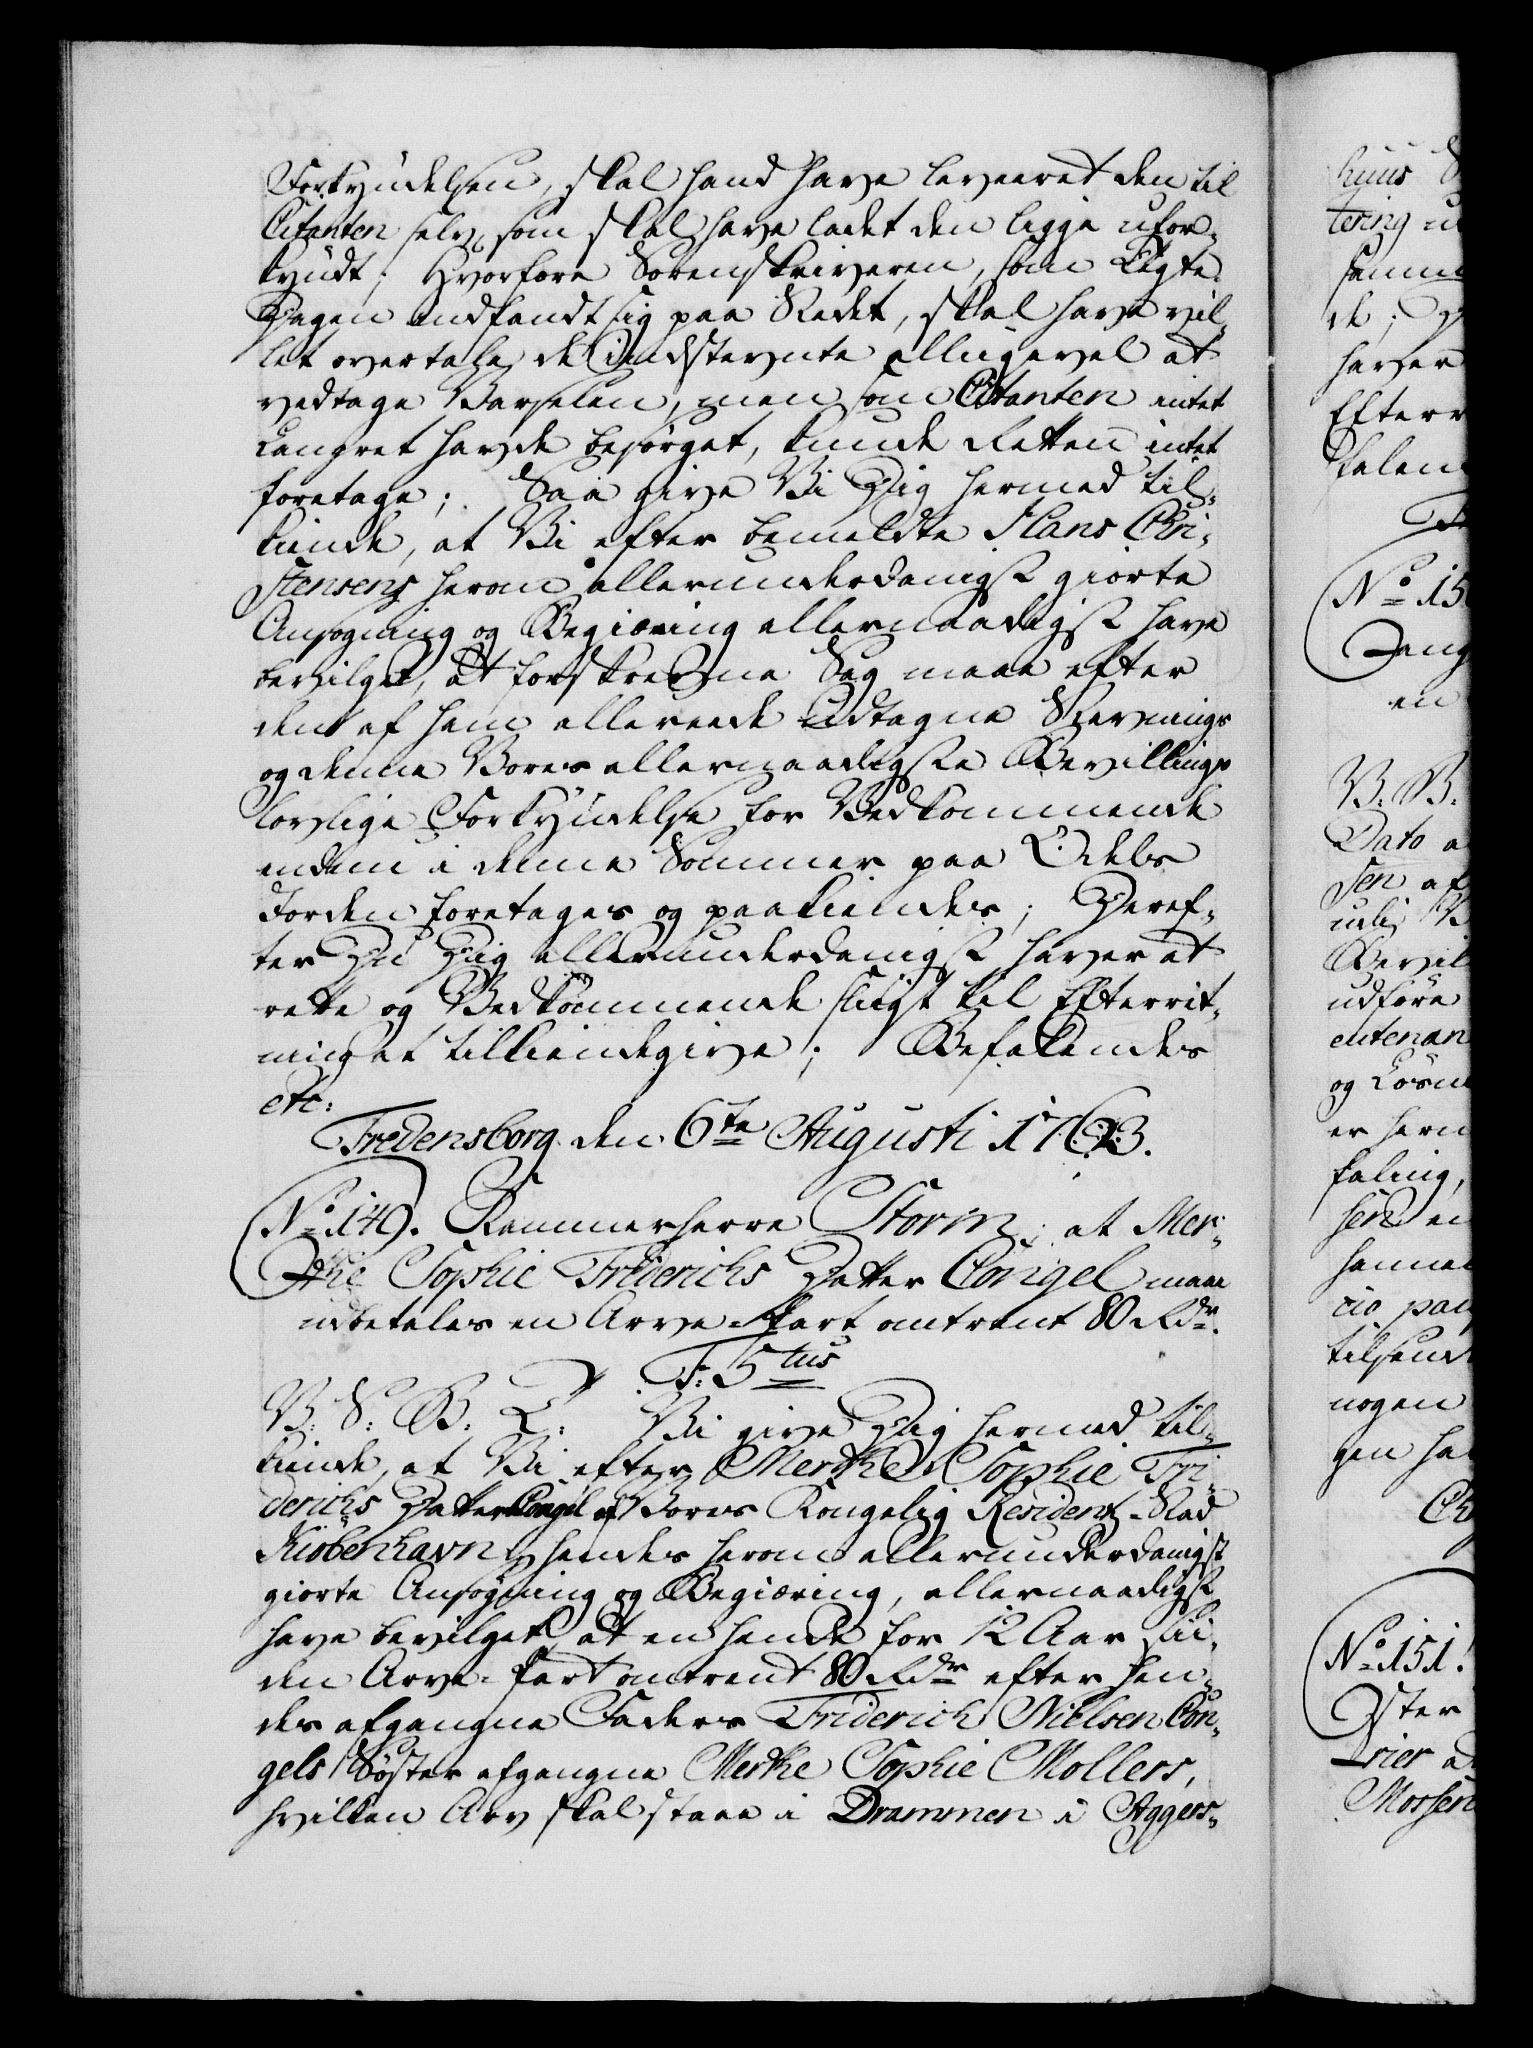 Forkyndelsen, skal hand have leveeret den til
Citanten selv, som skal have ladet den ligge ufor-
kyndt; Hvorfore Sorenskriveren, som Ægte
Dagen indfandt sig paa Stedet, skal have vil-
let overtale de indstevnte alligevel at
vedtage Varselen, men som Citanten intet
Laugret havde besørget, kunde Retten intet
foretage; Saa give Vi Dig hermed til-
kiende, at Vi efter bemeldte Hans Chri-
stensens herom allerunderdanigst giorte
Ansøgning og Begiæring allernaadigst have
bevilget, at forskrevne Sag maae efter
den af ham allereede udtagne Stevnings
og denne Vores allernaadigste Bevillings
lovlige Forkyndelse for Vedkommende
endnu i denne Sommer paa Odels
Jorden foretages og paakiendes; Deref-
ter Du Dig allerunderdanigst haver at
rette og Vedkommende sligt til Efterret-
ninget tilkiendegive; Befalendes
etc:
Fredensborg den 6te Augusti 1723.
No 149. Kammerherre Storm, at Mer-
the Sophie Friderichs Datter Congel maae
udbetales en Arve-Part omtrent 80 Rdr.
F: 5tus
V: S: G: T: Vi give Dig hermed til-
kiende, at Vi efter Merthe Sophie Fri-
derichs Datter Congel af Vores Kongelig Residentz-Stad
Kiöbenhavn hendes herom allerunderdanigst
giorte Ansøgning og Begiæring, allernaadigst
have bevilget, at en hende for 12 Aar sii-
den Arve-Part omtrent 80 Rdr efter hen-
des afgangne Faders Friderich Nielsen Con-
gels Søster afgangne Merthe Sophie Mollers,
hvilken Arv skal staae i Drammen i Aggers-
huus S
tering u
samm
de;
haver
Efterr
falen
No 15
en
V. G.
Dato a
sen af
udi
Bevil
udføre
eutenan
og
er hern
faling,
sen en
hannem
cio paa
tilsend
nogen
gen ha
No 151.
Oster
Morsen